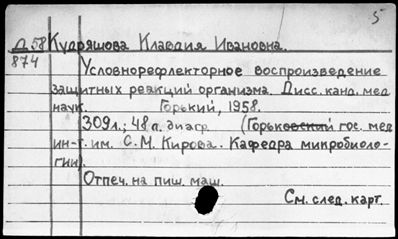 5
Д 58 Кудряшова Клавдия Ивановна.
874
Условнорефлекторное воспроизведение
защитных реакций организма. Дисс. канд. мед
наук. Горький, 1958.
309 л.; 48 л. диагр. (Горьковский гос. мед
ин-т. им. С. М. Кирова. Кафедра микробиоло-
гии).
Отпеч. на пиш. маш.
См. след. карт.